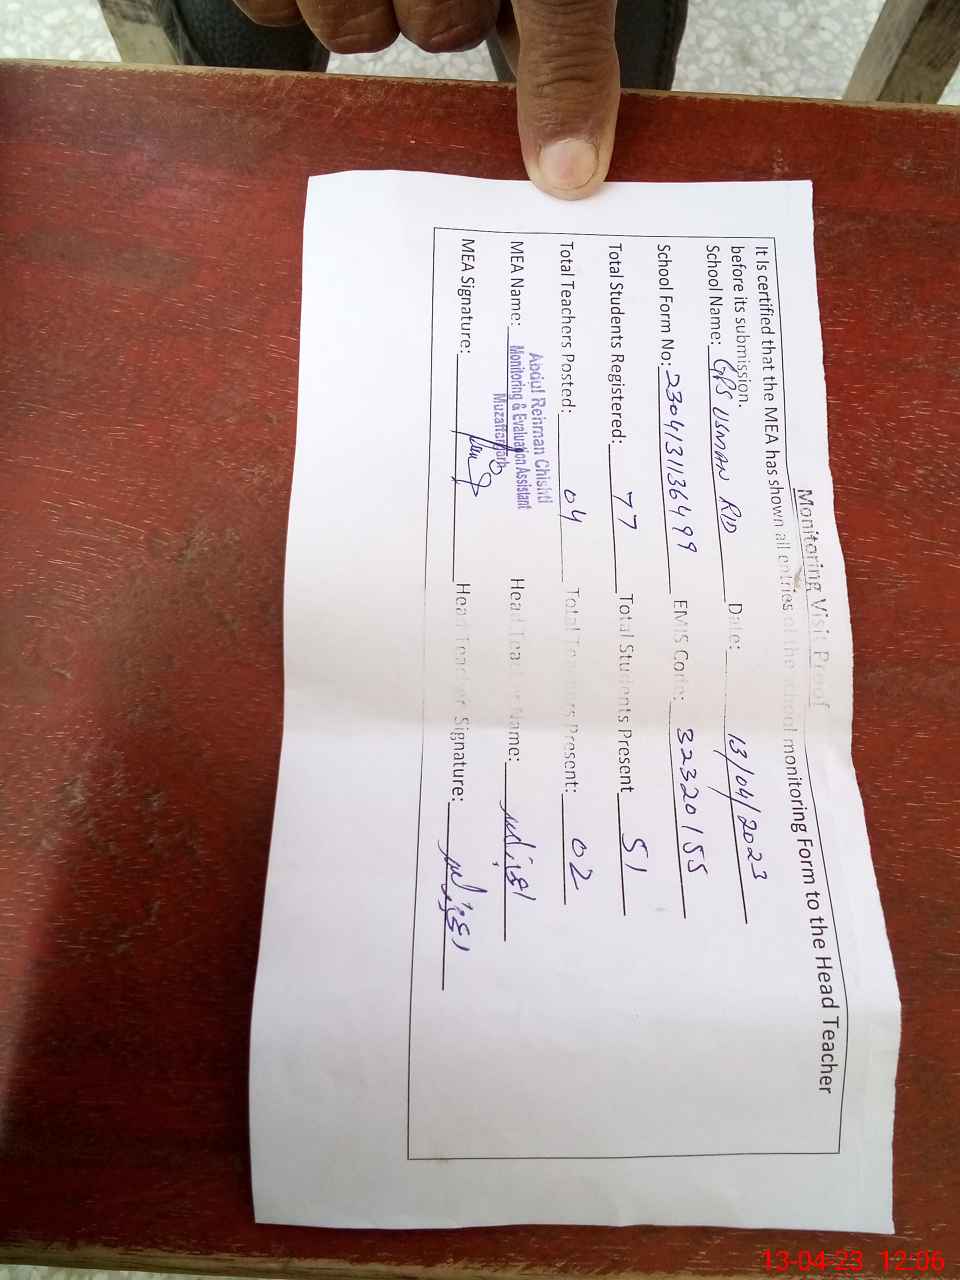 Monitoring Visit Proof
It Is certified that the MEA has shown all entries of the school monitoring Form to the Head Teacher
before its submission.
School Name: GPS USMAN RID Date: 13/04/2023
School Form No: 2304131136499 EMIS Code: 32320155
Total Students Registered: 77 Total Students Present 51
Total Teachers Posted: 04 Total Teachers Present: 02
Abdul Rehman Chishti
MEA Name: Monitoring & Evaluation Assistant Head Teacher Name:
Muzaffargarh
MEA Signature: Head Teacher Signature:
13-04-23 12:06